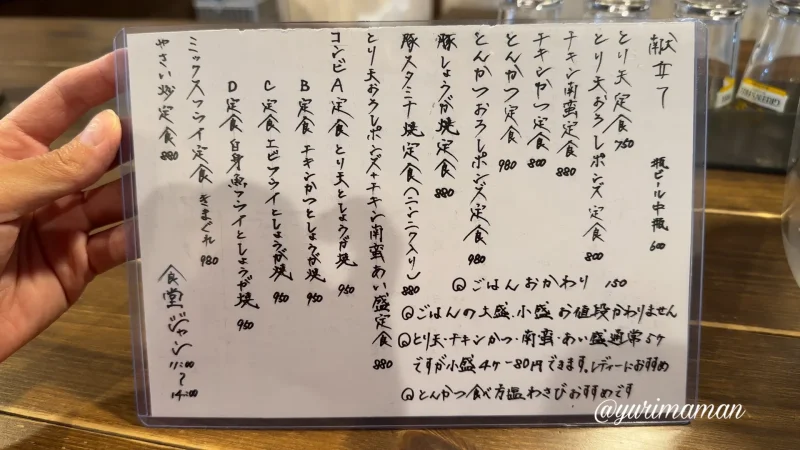 献立て
瓶ビール中瓶 600
とり天定食 750
とり天おろしポンズ定食 800
チキン南蛮定食 880
チキンかつ定食 800
とんかつ定食 980
とんかつおろしポンズ定食 980
豚しょうが焼定食 880
豚スタミナ焼定食(ニンニク入り) 880
とり天おろしポンズ+チキン南蛮あい盛定食 880
コンビA定食 とり天としょうが焼 950
B定食 チキンかつとしょうが焼 950
C定食 エビフライとしょうが焼 950
D定食 白身魚フライとしょうが焼 950
ミックスフライ定食 きまぐれ 980
やさい炒定食 880
ごはんおかわり 150
ごはんの大盛.小盛 お値段かわりません
とり天・チキンかつ・南蛮・あい盛通常5ケ
ですが小盛4ケ-80円できます。レディーにおすすめ
とんかつ食べ方 塩わさびおすすめです
食堂ジャン
11:00
〜
14:00
@yurimaman